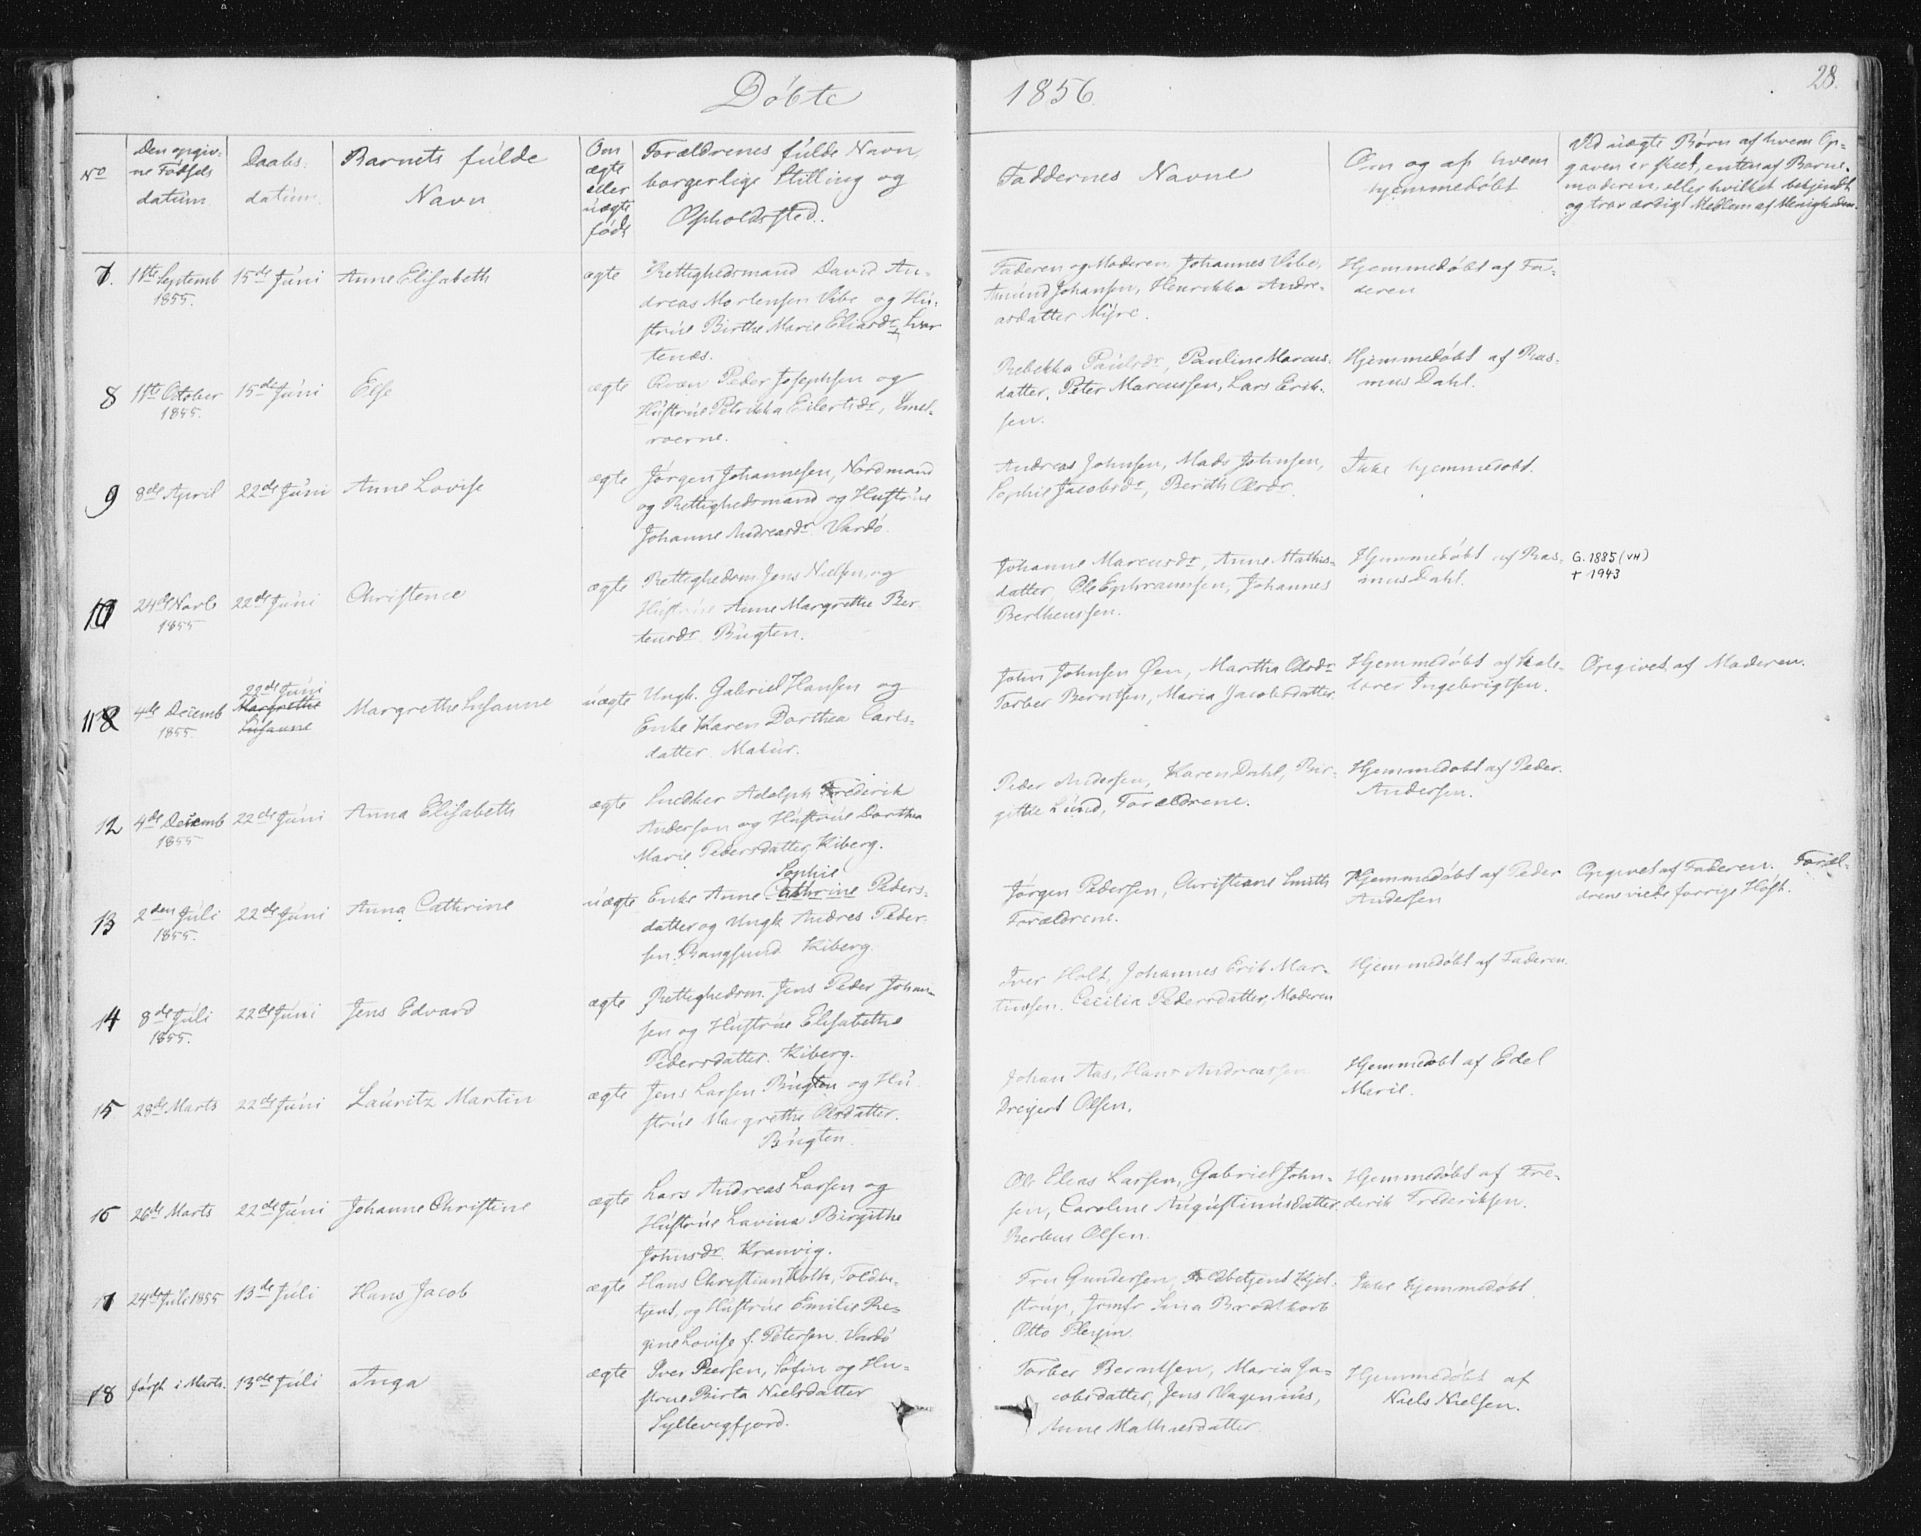 Døbte
1856.
28.
No
Den opgiv-
ne Fødsels
datum
Daabs-
datum
Barnets fulde
Navn
Om
ægte
eller
uægte
født
Forældrenes fulde Navn,
borgerlige Stilling og
Opholdssted.
Faddernes Navne
Om og af hvem
hjemmedøbt
Ved uægte Børn af hvem Op-
gaven er skeet, enten af Barne-
moderen, eller hvilket bekjendt
og troværdigt Medlem af Menigheden.
7.
11te Septemb
1855.
15de Juni
Anne Elisabeth
ægte
Rettighedsmand David An-
dreas Mortensen Vibe og Hu-
strue Birthe Marie Eliasdr,
tenæs.
Faderen og Moderen, Johannes Vibe,
Amund Johansen, Henrikka Andre-
asdatter Myre.
Hjemmedøbt af Fa-
deren
8
11te October
1855.
15de Juni
Else
ægte
Qvæn Peder Josephsen og
Hustrue Petrikka Eilertsdr,
Rebekka Paulsdr, Pauline Marcus-
datter, Peter Marcussen, Lars Erik-
sen.
Hjemmedøbt af Ras-
mus Dahl.
9
8de April
22de Juni
Anne Lovise
ægte
Jørgen Johannesen, Nordmand
og Rettighedsmand og Hustrue
Johanne Andreasdr. Vardø
Andreas Johnsen, Mads Johnsen,
Sophie Jacobsdr, Berith Olsdr.
Ikke hjemmedøbt.
10
24de Novb
1855
22de Juni
Christence
ægte
Rettighedsm. Jens Nielsen, og
Hustrue Anne Margrethe Ber-
tensdr. Bugten.
Johanne Marcusdr, Anne Mathis-
datter, Ole Ephraimsen, Johannes
Bertheussen.
Hjemmedøbt af Ras-
mus Dahl.
G. 1885 (VH)
+ 1943
11
4de Decemb
1855.
22de Juni
Margrethe
Susanne
Margrethe Susanne
uægte
Ungk. Gabriel Hansen og
Enke Karen Dorthea Carls-
datter. Makur.
John Johnsen Øen, Martha Olsdr
Torber Berntsen, Maria Jacobsdatter
Hjemmedøbt af Skole-
lærer Ingebrigtsen.
Opgivet af Moderen.
12
4de Decemb
1855
22de Juni
Anna Elisabeth
ægte
Snedker Adolph Frederik
Anderson og Hustrue Dorthea
Marie Pedersdatter, Kiberg.
Peder Andersen, Karen Dahl, Bir-
gitte Lund, Forældrene.
Hjemmedøbt af Peder
Andersen.
13
2den Juli
1855.
22de Juni
Anna Cathrine
uægte
Sophie
Enke Anne Cathrine Peders-
datter og Ungk. Andres Peder-
sen Bangsund Kiberg.
Jørgen Pedersen, Christiane Smith
Forældrene.
Hjemmedøbt af Peder
Andersen
Opgivet af Faderen. Foræl-
drene viede forrige Høst.
14
8de Juli
1855.
22de Juni
Jens Edvard
ægte
Rettighedsm. Jens Peder Johan-
sen og Hustrue Elisabethe
Pedersdatter. Kiberg.
Iver Holt, Johannes Erik Mar-
tinsen. Cecilia Pedersdatter, Moderen
Hjemmedøbt af Faderen.
15
28de Marts
22de Juni
Lauritz Martin
ægte
Jens Larsen Bugten og Hu-
strue Margrethe Olsdatter.
Bugten.
Johan Aas, Hans Andreassen
Dreijert Olsen.
Hjemmedøbt af Edel
Marie.
16
26de Marts
22de Juni
Johanne Christine
ægte
Lars Andreas Larsen og
Hustrue Lavina Birgithe
Johnsdr. Kramvig.
Ole Elias Larsen, Gabriel John-
sen, Caroline Augustinusdatter,
Berteus Olsen.
Hjemmedøbt af Fre-
derik Frederiksen.
17
24de Juli 1855
13de Juli
Hans Jacob
ægte
Hans Christian Holth, Toldbe-
tjent, og Hustrue Emilie Re-
gine Lovise f. Petersen. Vardø
Fru Gundersen, Toldbetjent Hjel-
strup, Jomfr Lina Brodtkorb
Otto Pleym.
Ikke hjemmedøbt.
18
først i Marts.
13de Juli
Inga
ægte
Iver Persen, Søfin og Hu-
strue Birte Nielsdatter
Syltevigfjord.
Torber Berntsen, Maria Ja-
cobsdatter, Jens Wagenius,
Anne Mathisdatter.
Hjemmedøbt af
Niels Nielsen.